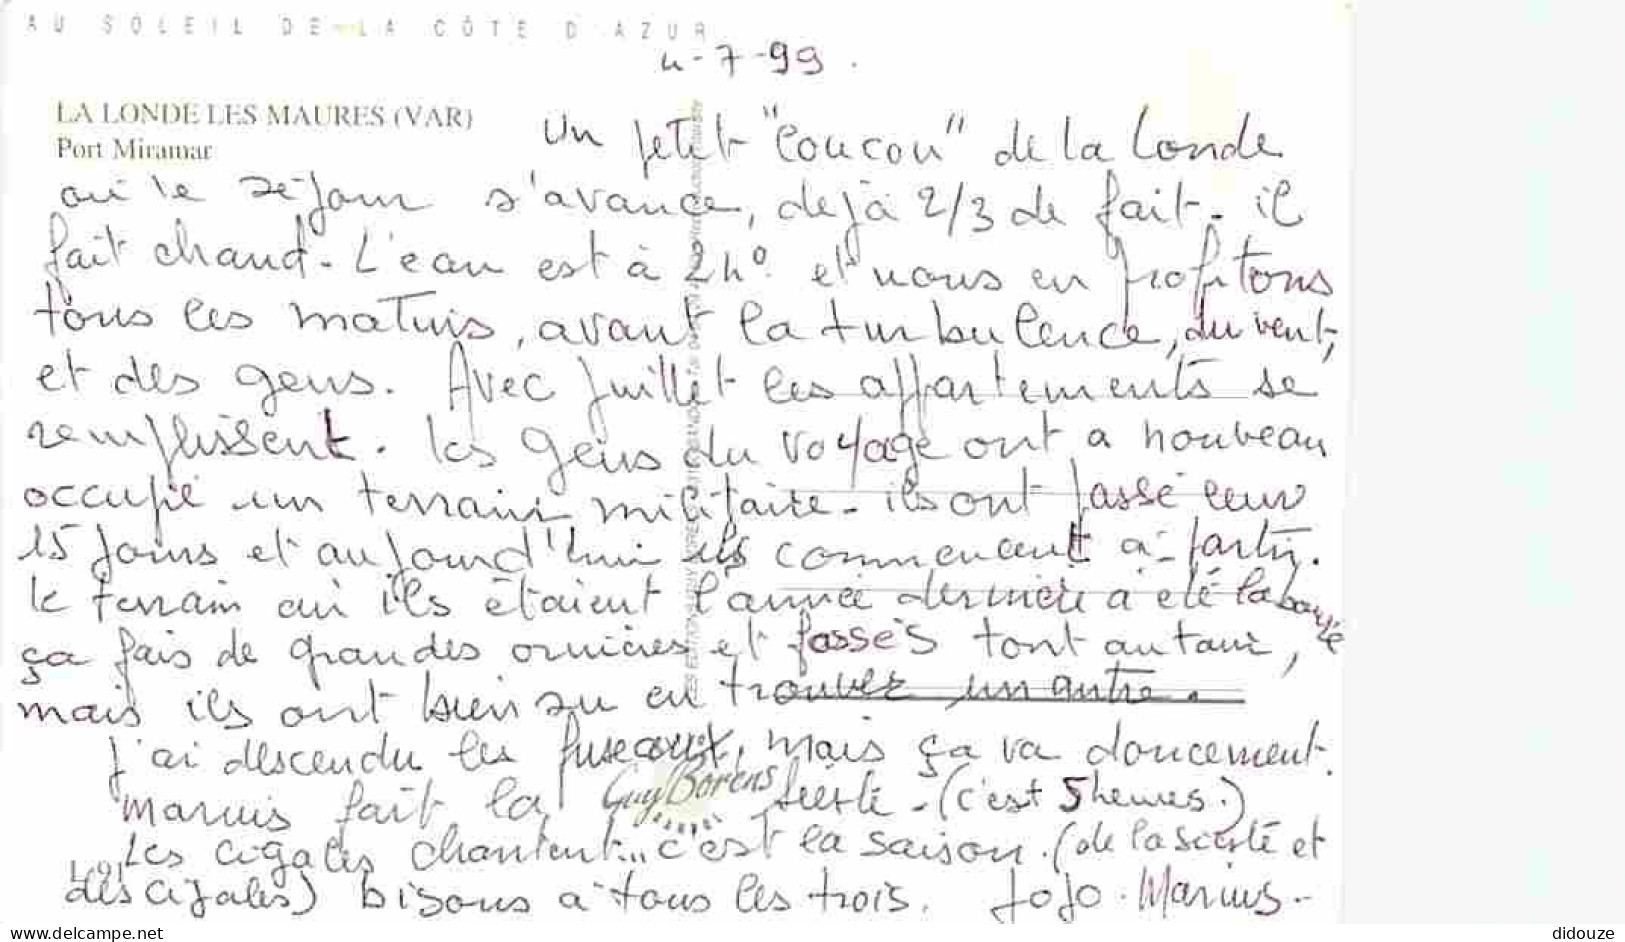 AU SOLEIL DE LA CÔTE D'AZUR
4-7-99.
LA LONDE LES MAURES (VAR)
Port Miramar
Un petit "Coucou" de la Londe
où le séjour s'avance, déjà 2/3 de fait. il
fait chaud. L'eau est à 24° et nous en profitons
tous les matins, avant la turbulence, du vent,
et des gens. Avec Juillet les appartements se
remplissent. les gens du voyage ont à nouveau
occupé un terrain militaire. ils ont passé leur
15 jours et aujourd'hui ils commencent à partir.
le terrain où ils étaient l'année dernière a été labouré
ça fais de grandes ornières et fossés tout autour,
mais ils ont bien su en trouver un autre.
J'ai descendu les fuseaux, mais ça va doucement.
Marius fait la sieste - (c'est 5 heures.)
Guy Borens
Les cigales chantent... c'est la saison. (de la sieste et
des cigales) bisous à tous les trois. JoJo. Marius.-
delcampe.net
didouze